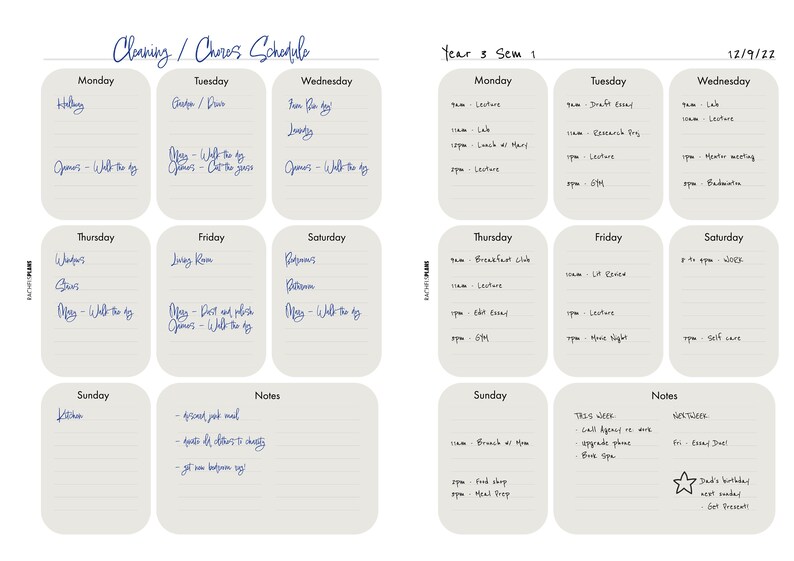 Cleaning / Chores Schedule
Monday
Hallway
James - Walk the dog
Tuesday
Garden / Drive
Mary - Walk the dog
James - Cut the grass
Wednesday
Farm Run day!
Laundry
James - Walk the dog
Thursday
Windows
Stairs
Mary - Walk the dog
Friday
Living Room
Mary - Dust and polish
James - Walk the dog
Saturday
Bedrooms
Bathroom
Mary - Walk the dog
Sunday
Kitchen
Notes
- discard junk mail
- donate old clothes to charity
- get new bedroom rug!
RACHELSPLANS
Year 3 Sem 1
12/9/22
Monday
9am - Lecture
11am - Lab
12pm - Lunch w/ Mary
2pm - Lecture
Tuesday
9am - Draft Essay
11am - Research Proj
1pm - Lecture
5pm - GYM
Wednesday
9am - Lab
10am - Lecture
1pm - Mentor meeting
5pm - Badminton
Thursday
9am - Breakfast Club
11am - Lecture
1pm - Edit Essay
5pm - GYM
Friday
10am - Lit Review
1pm - Lecture
7pm - Movie Night
Saturday
8 to 4pm - WORK
7pm - Self care
Sunday
11am - Brunch w/ Mom
2pm - Food shop
5pm - Meal Prep
Notes
THIS WEEK:
- Call Agency re: work
- Upgrade phone
- Book Spa
NEXTWEEK:
Fri - Essay Due!
Dad's birthday
next sunday
- Get Present!
RACHELSPLANS